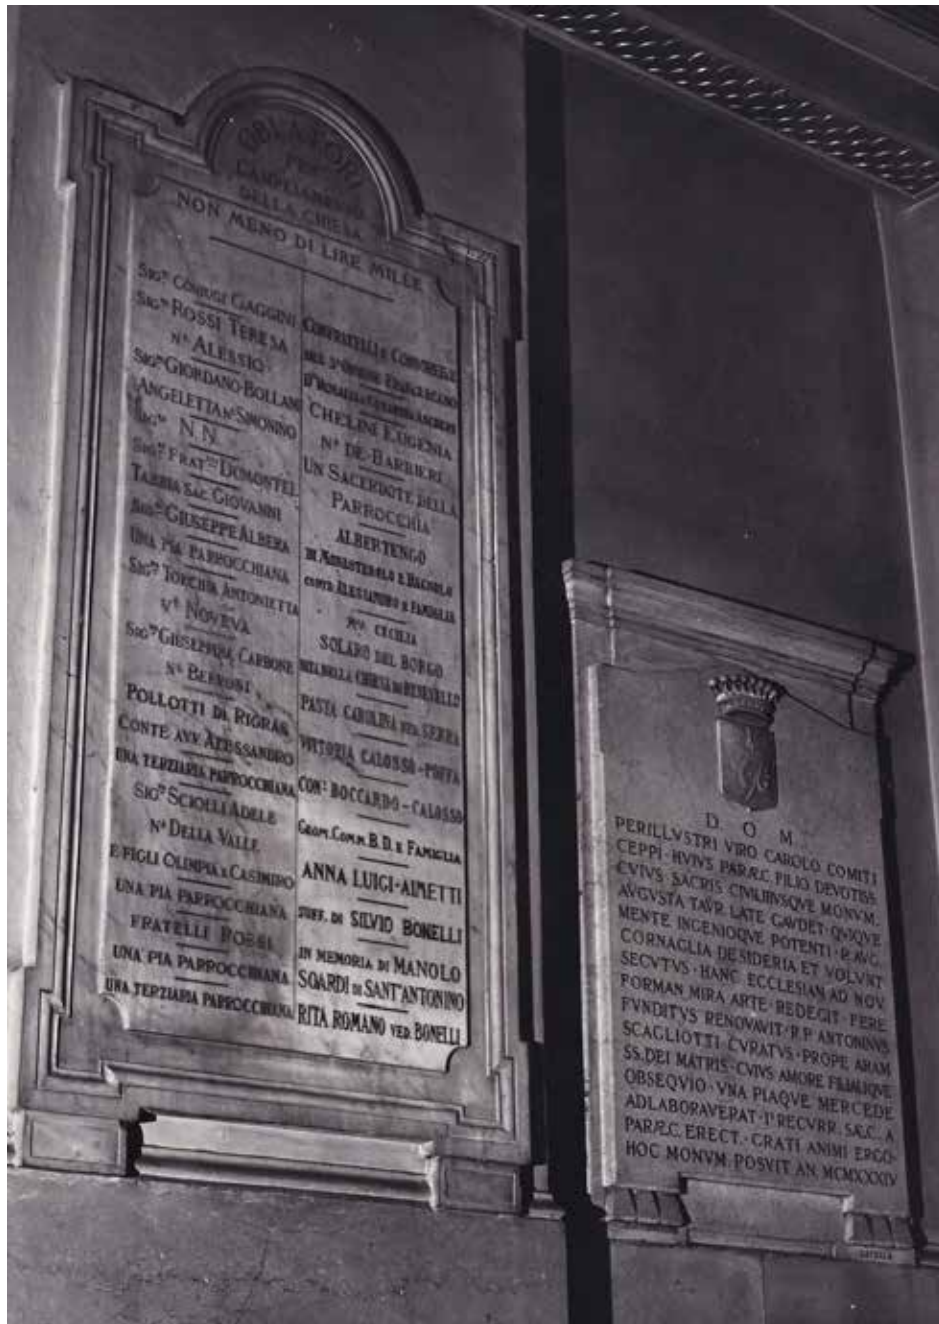 OBLATORI
PER
L'AMPLIAMENTO
DELLA CHIESA
NON MENO DI LIRE MILLE
SIGRI CONIUGI GAGGINI
SIGRA ROSSI TERESA
NTA ALESSIO
SIGRA GIORDANO-BOLLANI
ANGELETTA NTA SIMONINO
N.N.
SIGRI FRATLLI DUMONTEL
TABBIA SAC. GIOVANNI
GIUSEPPE ALBERA
UNA PIA PARROCCHIANA
SIGRA TORCHIA ANTONIETTA
VA NOVEVA
SIGRA GIUSEPPINA CARBONE
POLLOTTI DI RIGRAS
CONTE AVV. ALESSANDRO
UNA TERZIARIA PARROCCHIANA
SIGRA SCIOLLI ADELE
NTA DELLA VALLE
E FIGLI OLIMPIA E CASIMIRO
UNA PIA PARROCCHIANA
FRATELLI ROSSI
UNA PIA PARROCCHIANA
UNA TERZIARIA PARROCCHIANA
CONFRATELLI E CONSORELLE
DEL 3º ORDINE FRANCESCANO
CHELINI EUGENIA
NTA DE-BARBIERI
UN SACERDOTE DELLA
PARROCCHIA
ALBERTENGO
DI MONASTEROLO E BAGNOLO
CONTE ALESSANDRO E FAMIGLIA
CECILIA
SOLARO DEL BORGO
NATA DELLA CHIESA DI
PASTA CAROLINA VED. SERRA
VITTORIA CALOSSO-
CONI BOCCARDO-CALOSSO
GEOM. COMM. B.D. E FAMIGLIA
ANNA LUIGI-AIMETTI
SUFF. DI SILVIO BONELLI
IN MEMORIA DI MANOLO
SOARDI DI SANT'ANTONINO
RITA ROMANO VED. BONELLI
D. O. M.
PERILLVSTRI VIRO CAROLO COMITI
CEPPI · HVIVS PARÆC. FILIO DEVOTISS.
CVIVS SACRIS CIVILIBVSQVE MONVM.
AVGVSTA TAVR. LATE GAVDET · QVIQVE
MENTE INGENIOQVE POTENTI · P. AVG.
CORNAGLIA DESIDERIA ET VOLVNT
SECVTVS · HANC ECCLESIAN AD NOV.
FORMAN MIRA ARTE REDEGIT · FERE
FVNDITVS RENOVAVIT · R.P. ANTONINVS
SCAGLIOTTI CVRATVS · PROPE ARAM
SS. DEI MATRIS · CVIVS AMORE FILIALIQVE
OBSEQVIO · VNA PIAQVE MERCEDE
ADLABORAVERAT · I° RECVRR. SÆC. A
PARÆC. ERECT. · GRATI ANIMI ERGO
HOC MONVM. POSVIT AN. MCMXXXIV